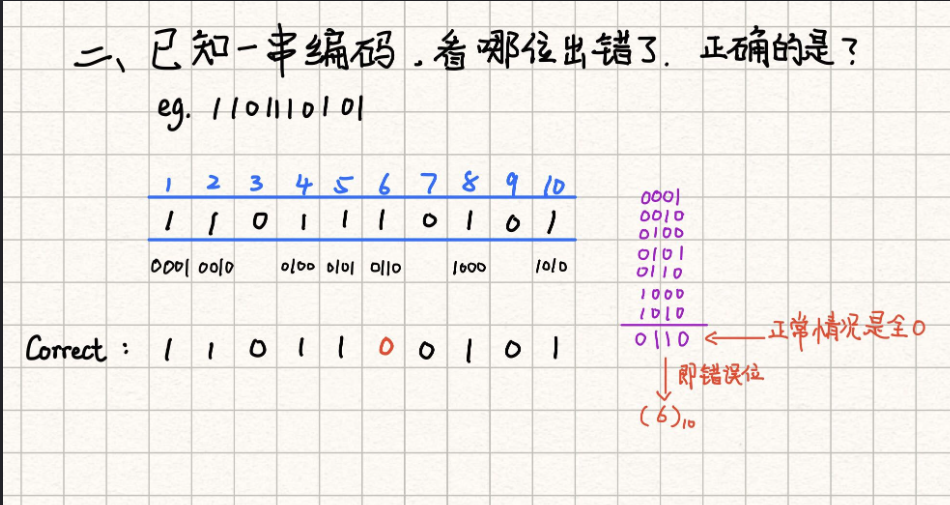 二、已知一串编码,看哪位出错了. 正确的是?
eg. 1101110101
1 2 3 4 5 6 7 8 9 10
1 1 0 1 1 1 0 1 0 1
0001 0010 0100 0101 0110 1000 1010
Correct: 1 1 0 1 1 0 0 1 0 1
0001
0010
0100
0101
0110
1000
1010
0110 ← 正常情况是全0
↓ 即错误位
(6)₁₀